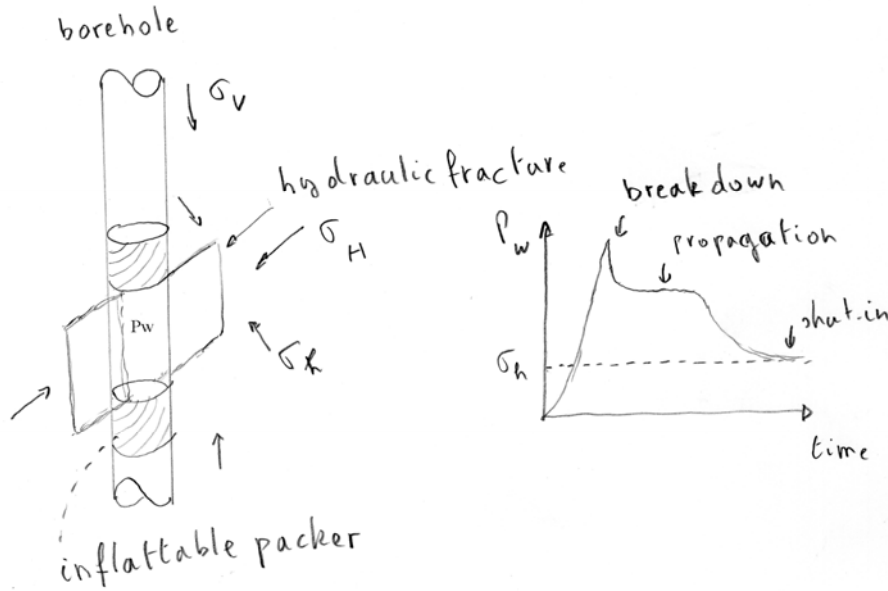 borehole
σv
hydraulic fracture
σH
Pw
σh
inflattable packer
break down
Pw
propagation
shut-in
σh
time